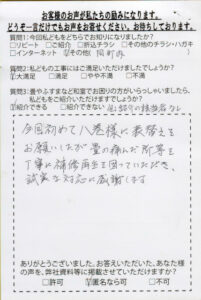 お客様のお声が私たちの励みになります。
どうぞ一言だけでもお声をお寄せください。お待ちしております。
質問1:今回私どもをどちらでお知りになりましたか?
□リピート □ご紹介 □折込チラシ □その他のチラシ・ハガキ
□インターネット ☑その他( 同町内 )
質問2:私どもの工事にはご満足いただけましたでしょうか?
☑大満足 □満足 □やや不満 □不満
質問3:畳やふすまなど和室でお困りの方がいらっしゃいましたら、
私どもをご紹介いただけますでしょうか?
☑紹介できる □紹介できない
今回初めて八巻様に表替えを
お願いしたが畳の痛んだ所等を
丁寧に補修再生を図っていただき、
誠実な対応に感謝します
ありがとうございました。お答えいただいた、あなた様
の声を、弊社資料等に掲載させていただけますか?
□許可 ☑匿名なら可 □不可